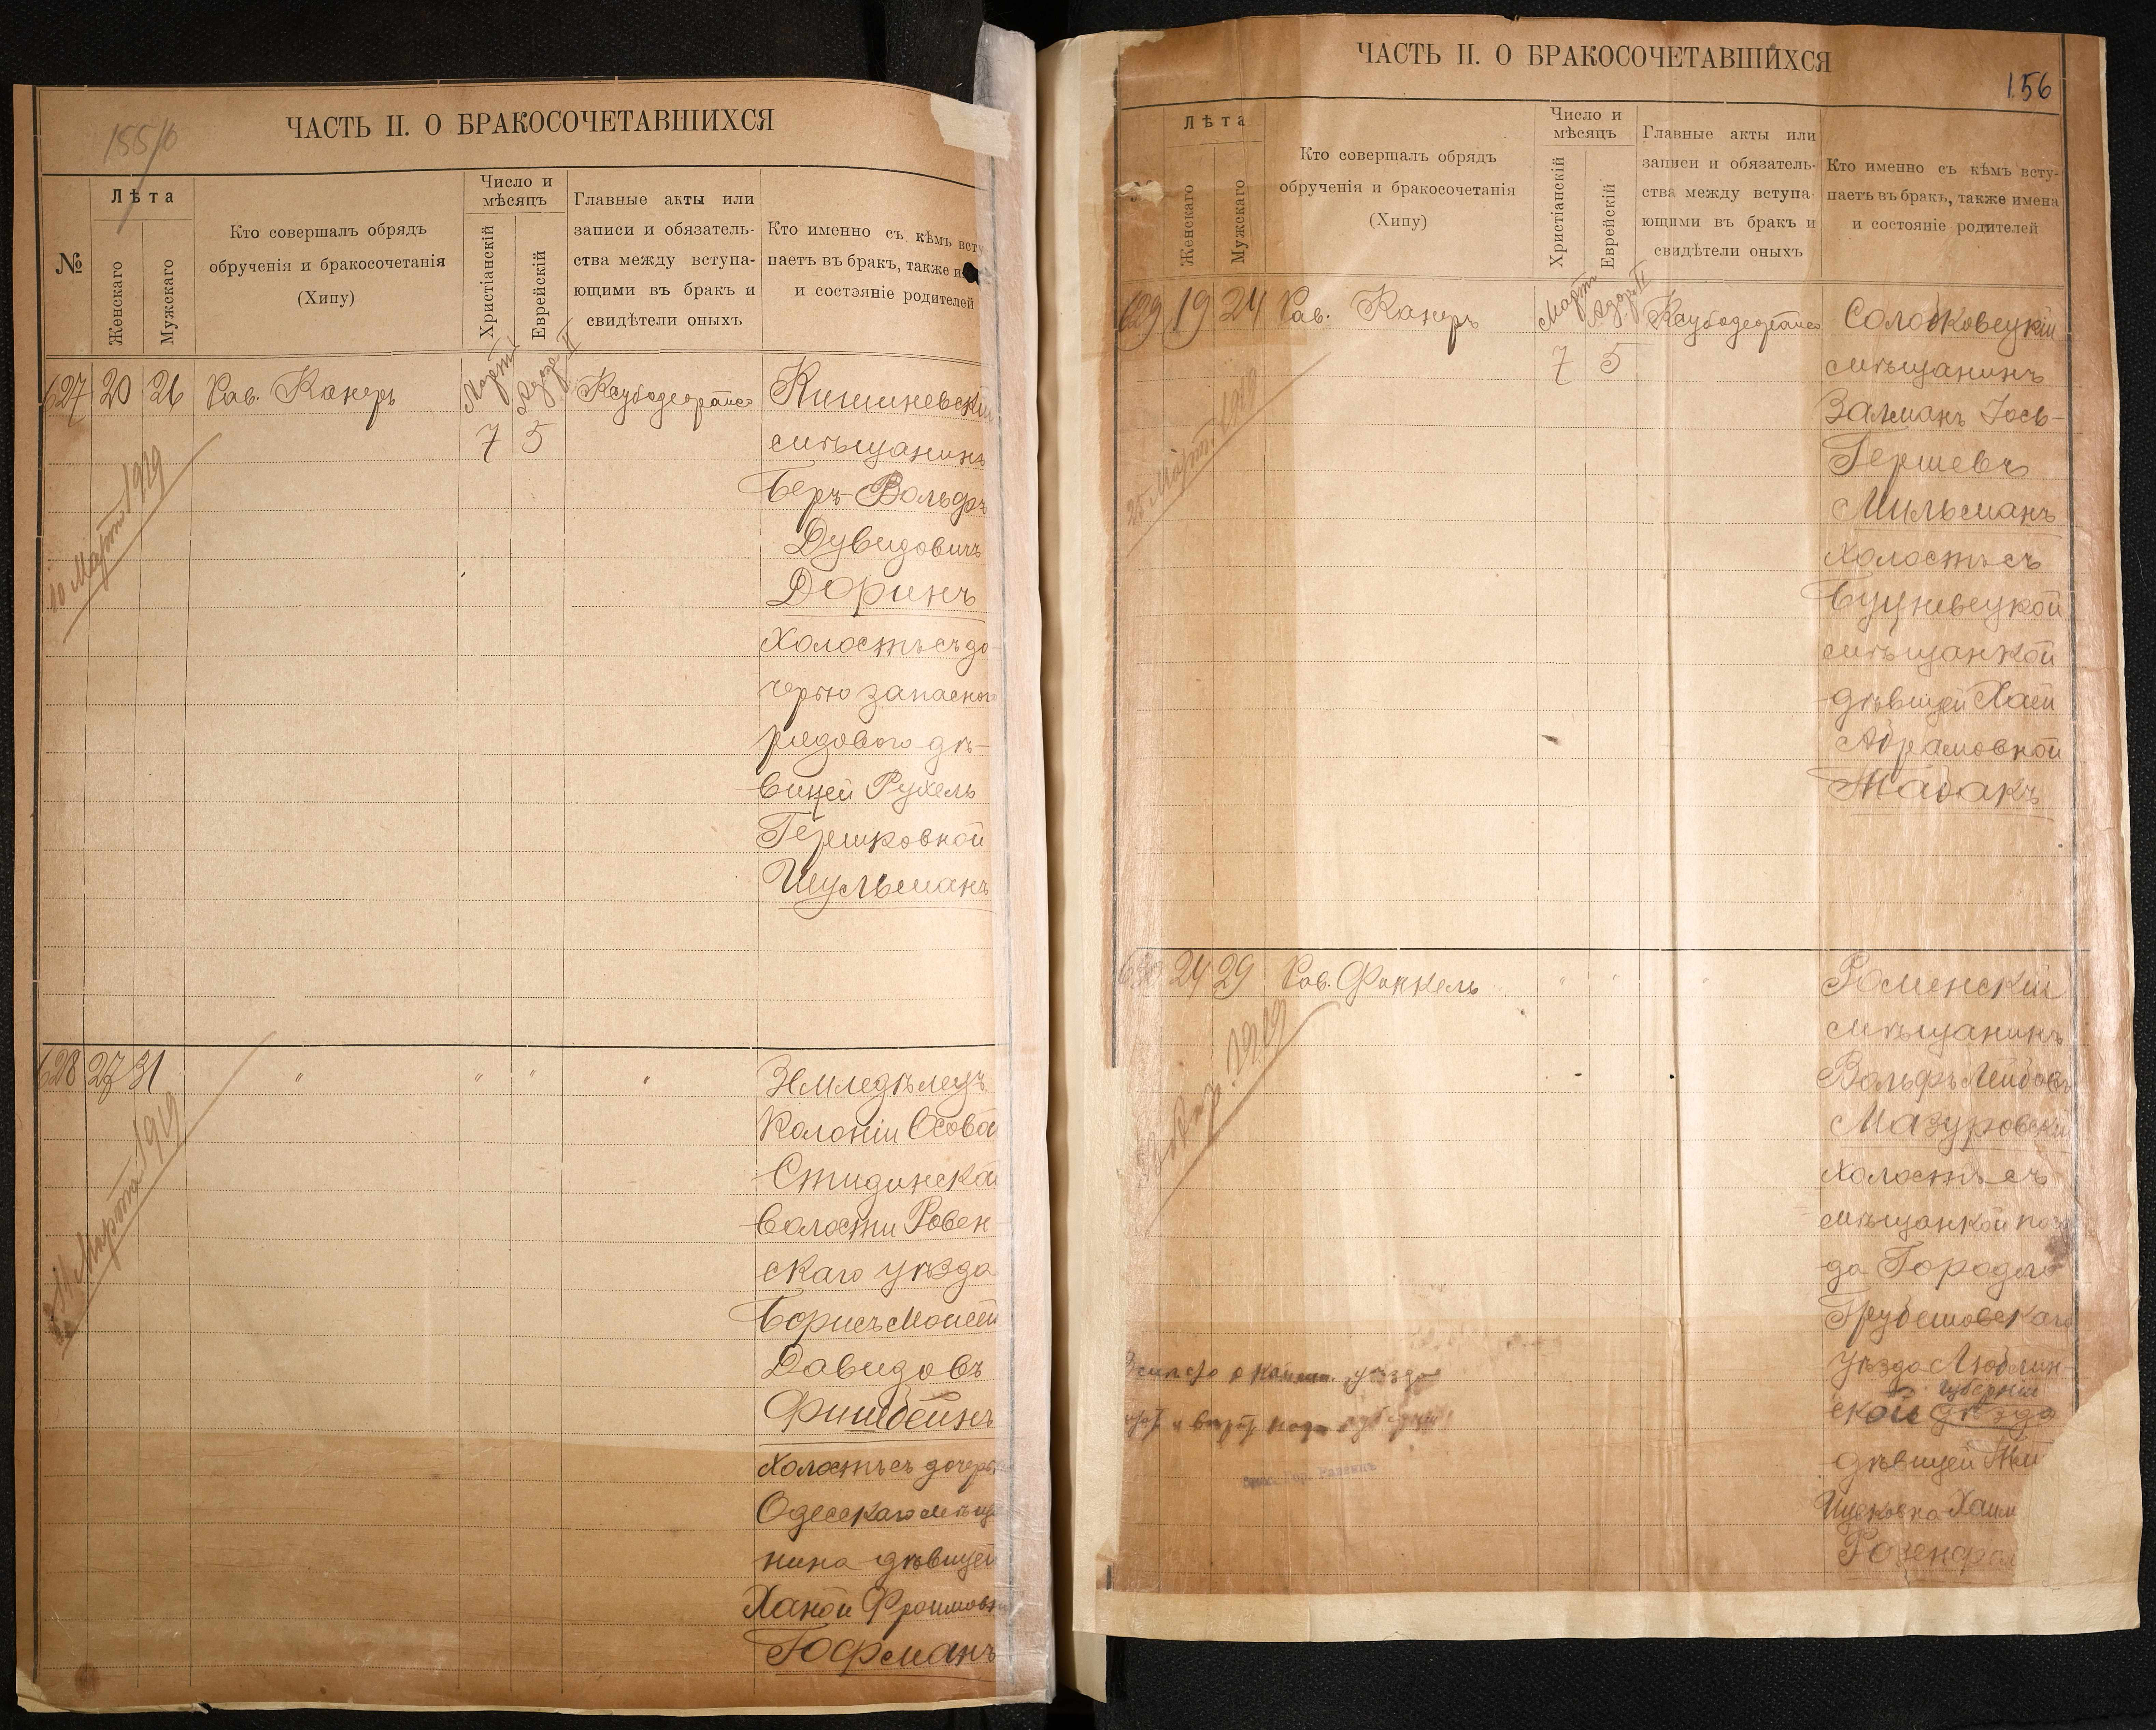 155/б
ЧАСТЬ II. О БРАКОСОЧЕТАВШИХСЯ
№
Лѣта
Женскаго
Мужскаго
Кто совершалъ обрядъ
обрученія и бракосочетанія
(Хипу)
Число и
мѣсяцъ
Христіанскій
Еврейскій
Главные акты или
записи и обязатель-
ства между вступа-
ющими въ бракъ и
свидѣтели оныхъ
Кто именно съ кѣмъ всту
паетъ въ бракъ, также и
и состояніе родителей
627 20 26 Рав. Канеръ Мартъ Адаръ II Кишиневскій
7 5 мѣщанинъ
Беръ-Вольфъ
Дувидовичъ
Доринъ
10 Марта 1919
холостъ съ до-
черью запасного
рядового дѣ-
вицей Рухель
Гершковной
Шульманъ
628 27 31 " " " " Землѣдѣлецъ
Колоніи Осова
Стидинской
волости Ровен-
скаго уѣзда
Борисъ Моисей
Давидовъ
Фишбейнъ
Марта 1919
холостъ съ дочерью
Одесскаго мѣща
нина дѣвицей
Ханой Фроимовн
Гофманъ
ЧАСТЬ II. О БРАКОСОЧЕТАВШИХСЯ
156
Лѣта
Женскаго
Мужскаго
Кто совершалъ обрядъ
обрученія и бракосочетанія
(Хипу)
Число и
мѣсяцъ
Христіанскій
Еврейскій
Главные акты или
записи и обязатель-
ства между вступа-
ющими въ бракъ и
свидѣтели оныхъ
Кто именно съ кѣмъ всту-
паетъ въ бракъ, также имена
и состояніе родителей
629 19 24 Рав. Канеръ Мартъ Адаръ II Солобковецкій
7 5 мѣщанинъ
Залманъ Іось-
Гершевъ
Мильманъ
25 Марта 1919
холостъ съ
Буцневецкой
мѣщанкой
дѣвицей Хаей
Абрамовной
Жабакъ
630 24 29 Рав. Финкель " " " Роменскій
мѣщанинъ
Вольфъ Лейбовъ
Мазуровскій
1919
холостъ съ
мѣщанкой поса
да Городло
Грубешовскаго
уѣзда Люблин-
губерніи
ской уѣзда
дѣвицей
Ицковна Хаим
Розенфел